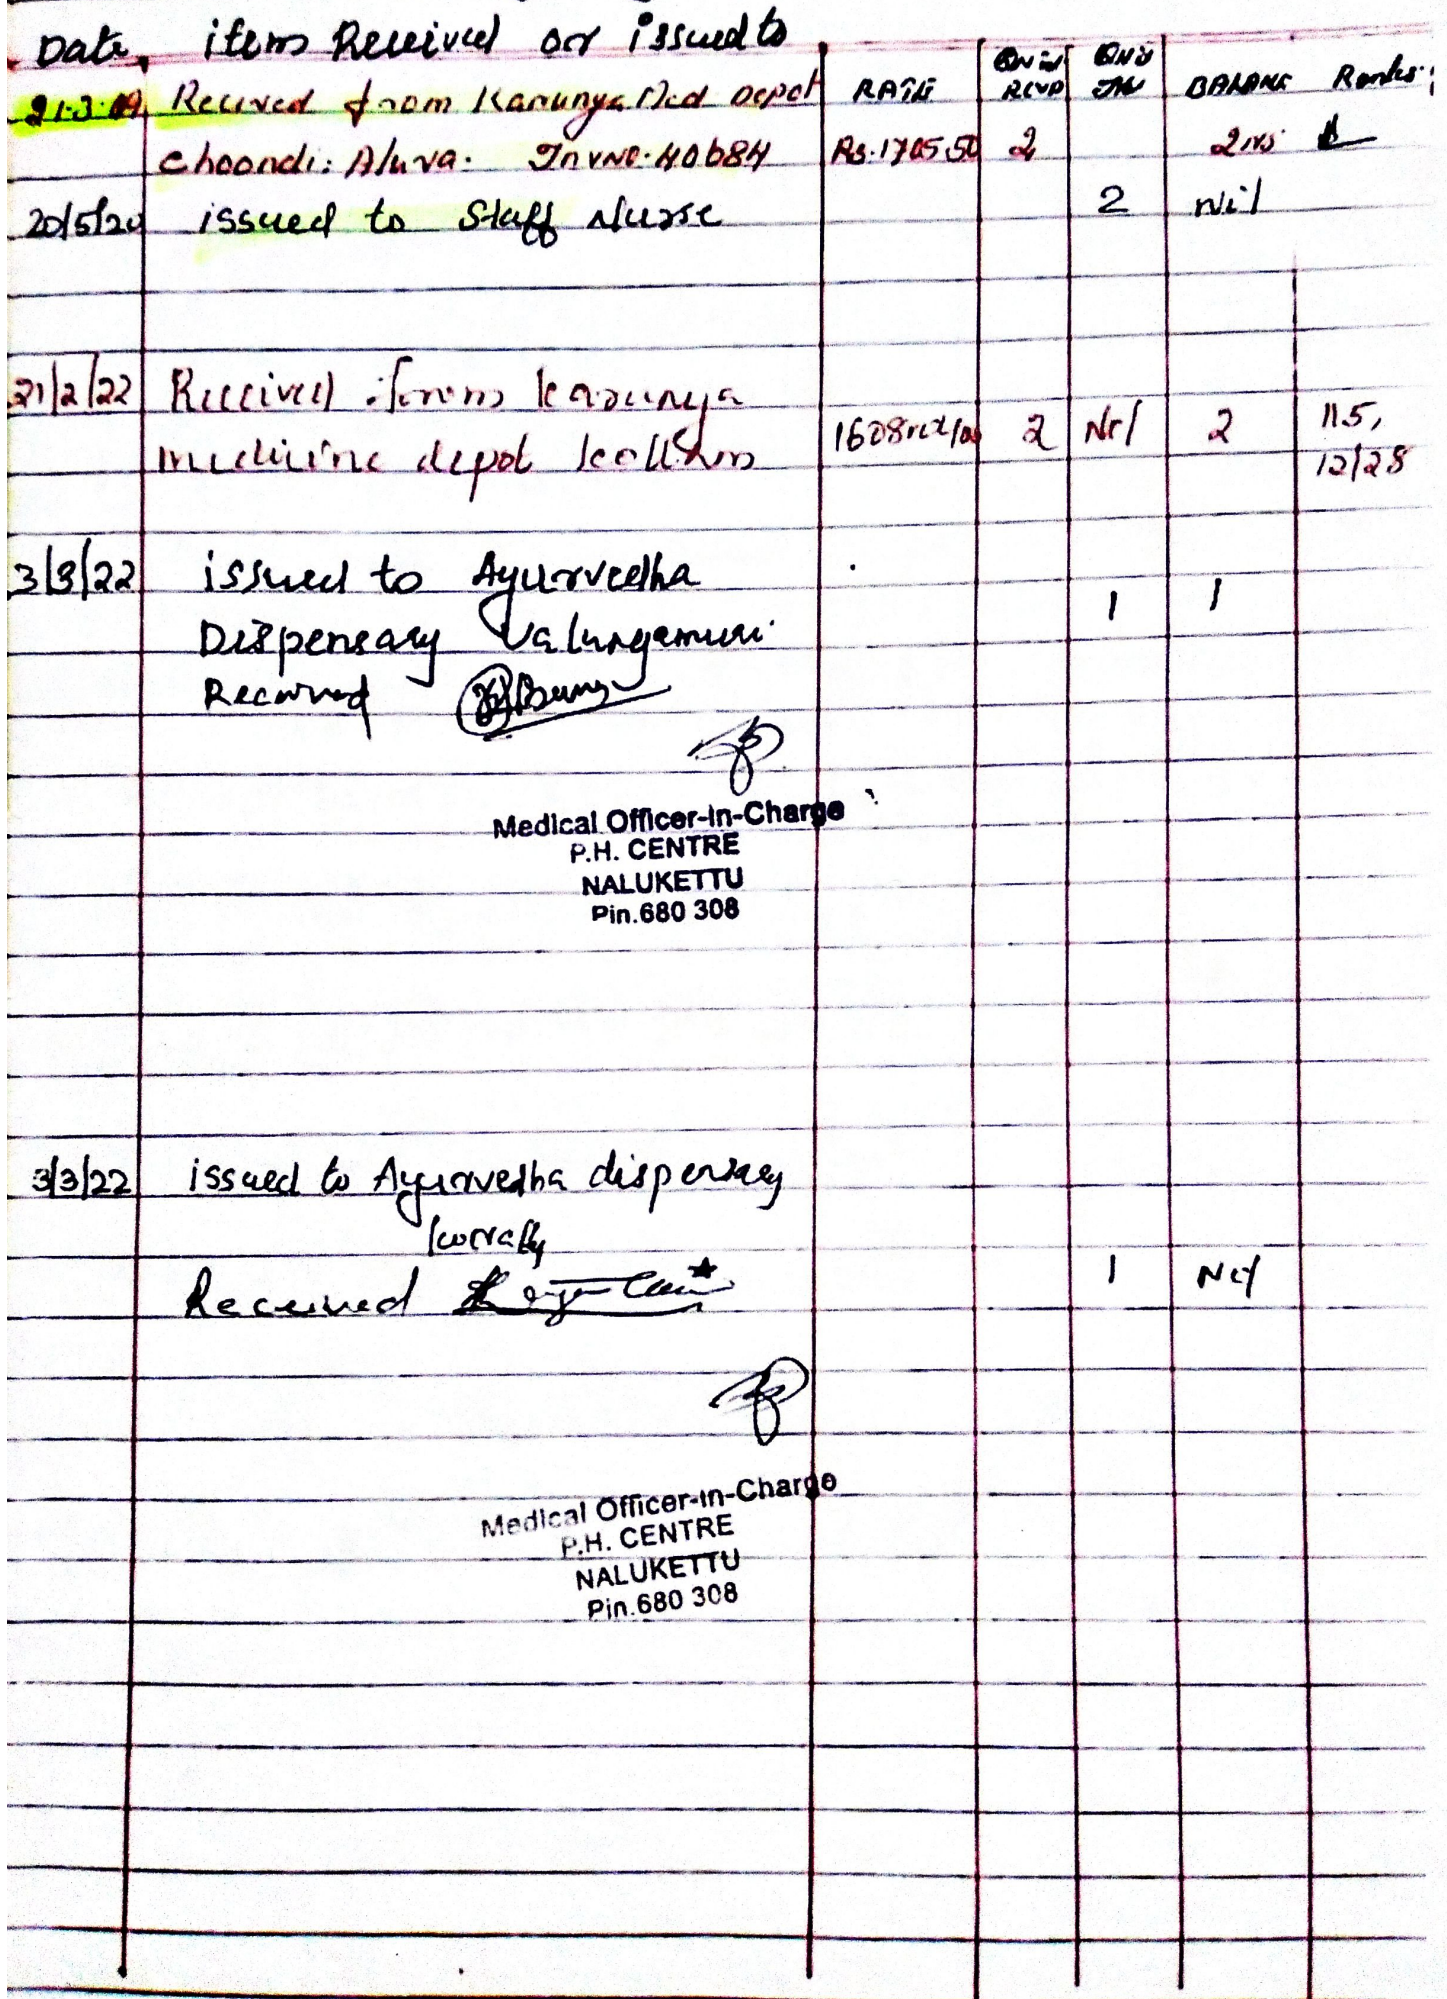 Date item Received or issued to RATE BALANCE
21.3.09 Received from Karunya Med Depot
Choondi: Aluva. Inv No. 40684 Rs. 1705.50 2 2 nos
20/5/20 issued to Staff Nurse 2 Nil
21/2/22 Received from karunya
medicine depot 2 Nil 2 115,
12/28
3/3/22 issued to Ayurvedha
Dispensary 1 1
Received
Medical Officer-in-Charge
P.H. CENTRE
NALUKETTU
Pin.680 308
3/3/22 issued to Ayurvedha dispensary
1 Nil
Received
Medical Officer-in-Charge
P.H. CENTRE
NALUKETTU
Pin.680 308